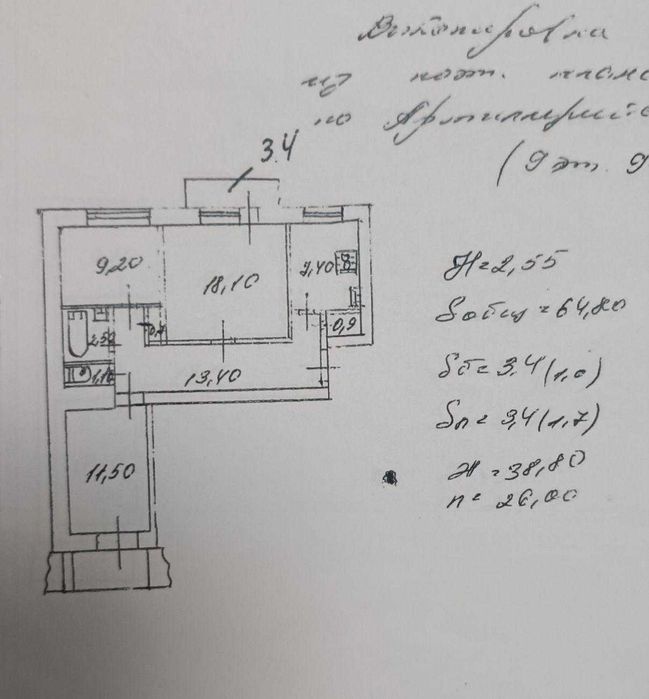 Выкопировка
из поэт. плана
по Артиллерийс
(9 эт. 9
3.4
9,20
18,10
7,40
2,50
0,9
1,10
13,40
11,50
H=2,55
Sобщ=64,80
Sб=3,4(1,0)
Sл=3,4(1,7)
Ж=38,80
П=26,00